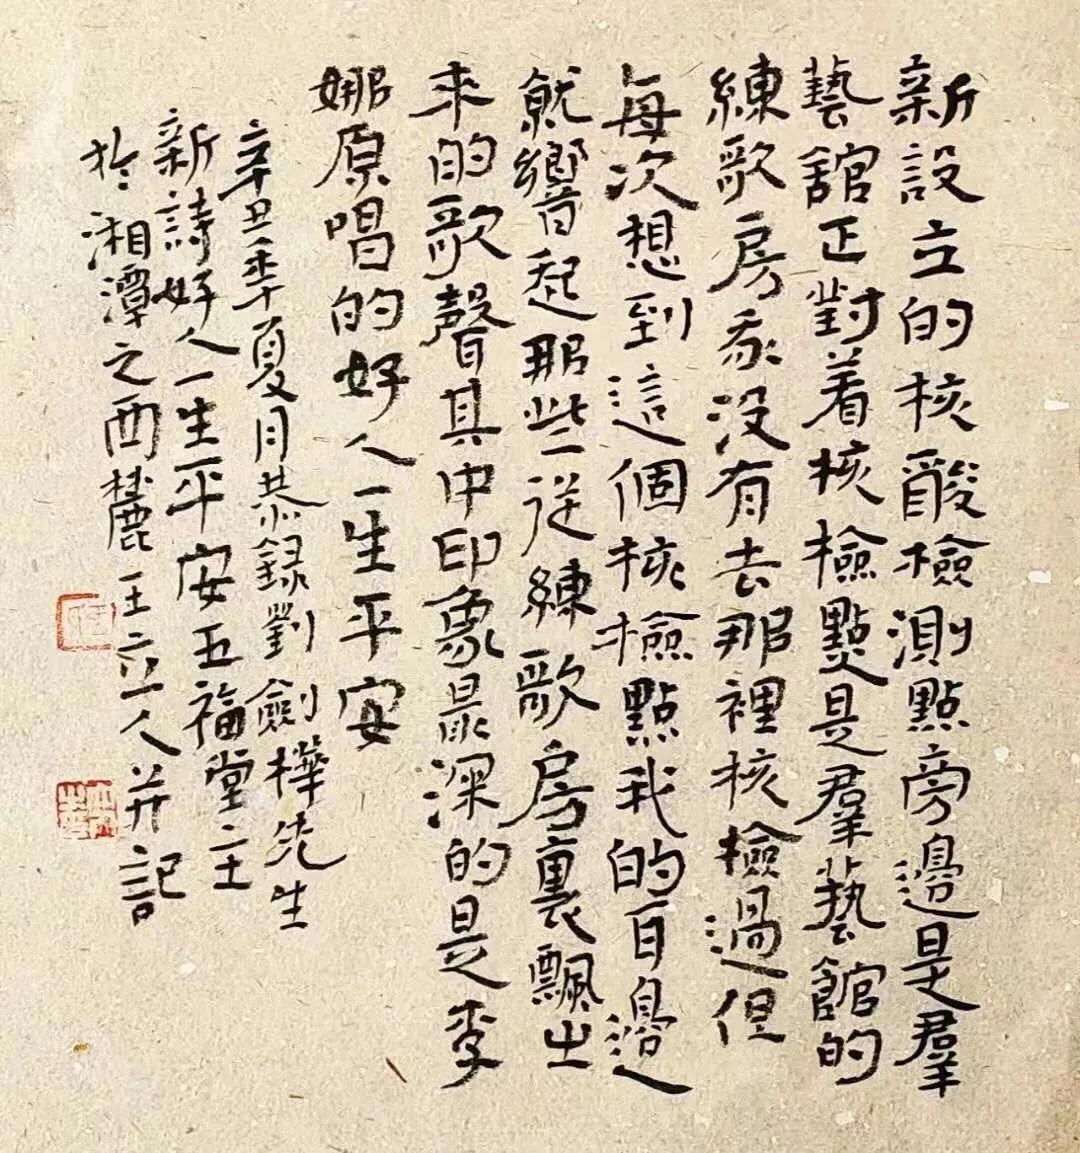 新設立的核酸檢測點旁邊是羣
藝舘正對着核檢點是羣藝館的
練歌房我没有去那裡核檢過但
每次想到這個核檢點我的耳邊
就響起那些從練歌房裏飄出
来的歌聲其中印象最深的是李
娜原唱的好人一生平安
辛丑季夏月恭録劉劍樺先生
新詩好人一生平安五福堂主
於湘潭之西麓王立人并記